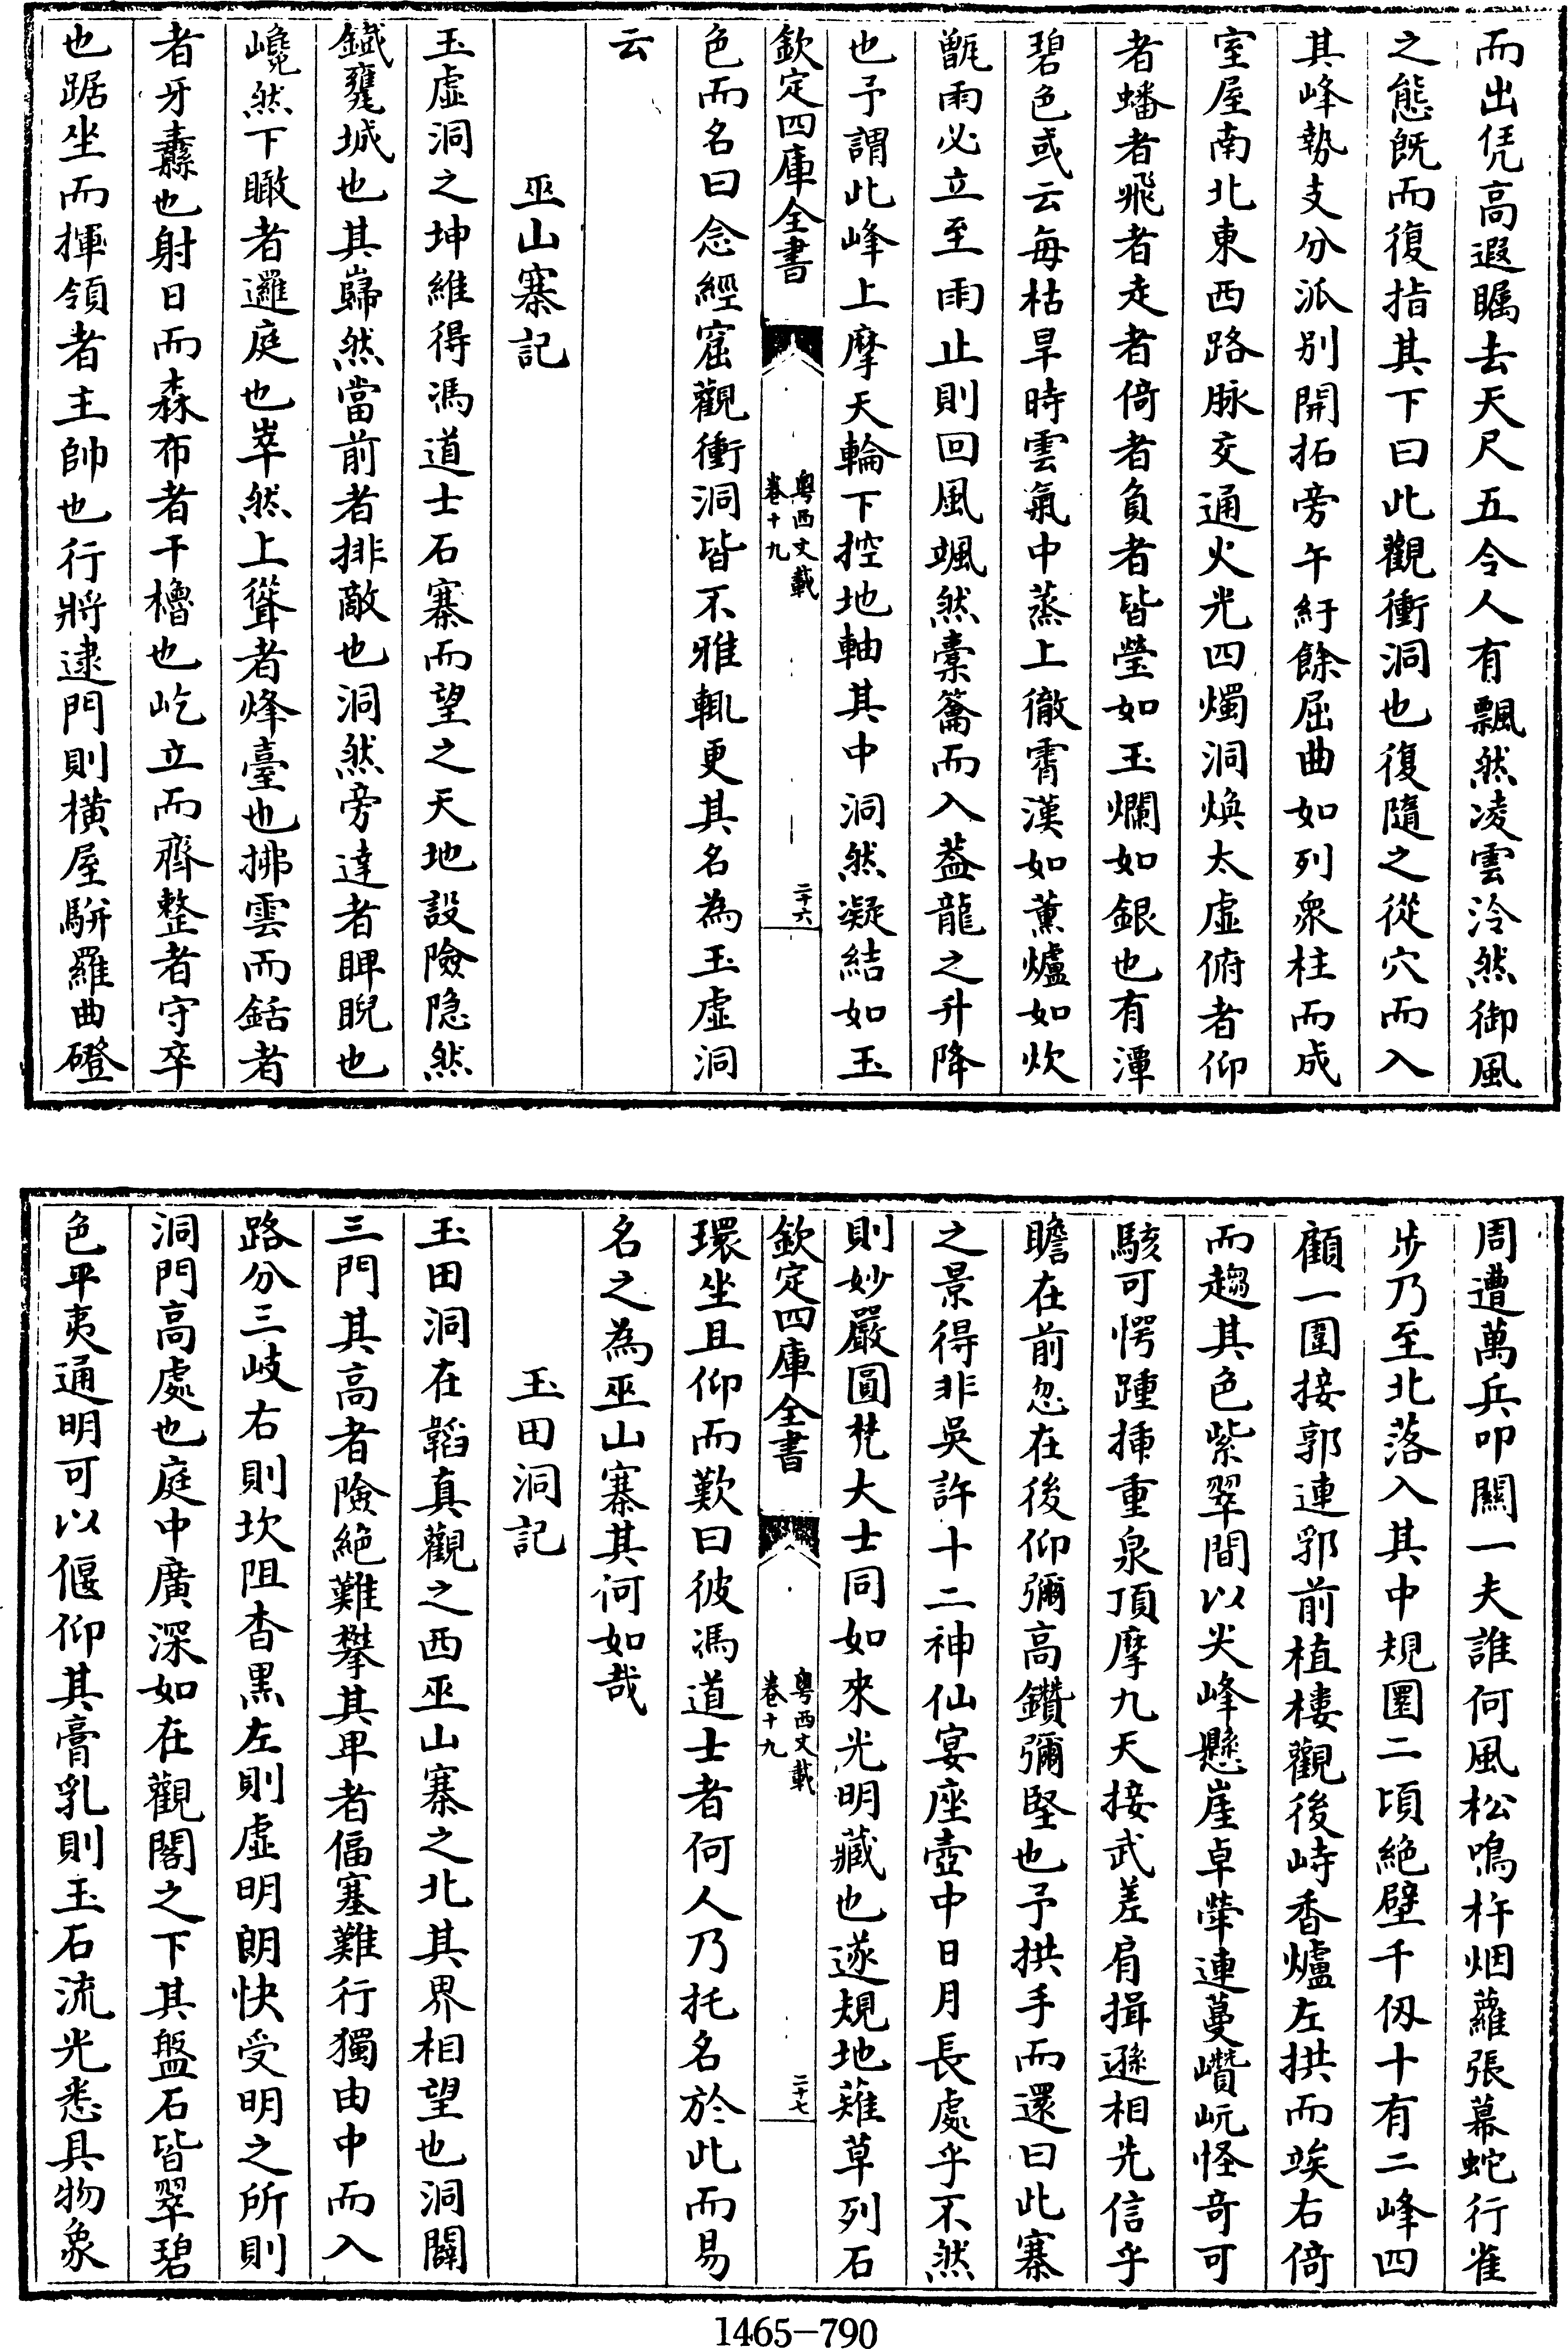 而出凭高遐矚去天尺五令人有飄然凌雲泠然御風
之態既而復指其下曰此觀衝洞也復隨之從穴而入
其峰勢支分派别開拓旁午紆餘屈曲如列衆柱而成
室屋南北東西路脉交通火光四燭洞煥太虚俯者仰
者蟠者飛者走者倚者負者皆瑩如玉爛如銀也有潭
碧色或云每枯旱時雲氣中蒸上徹霄漢如薰爐如炊
甑雨必立至雨止則回風颯然橐籥而入葢龍之升降
也予謂此峰上摩天輪下控地軸其中洞然凝結如玉
欽定四庫全書
粤西文載
卷十九
二十六
色而名曰念經窟觀衝洞皆不雅輒更其名為玉虚洞
云
巫山寨記
玉虚洞之坤維得馮道士石寨而望之天地設險隐然
鐵甕城也其巋然當前者排敵也洞然旁達者睥睨也
巉然下瞰者邏庭也崒然上聳者烽臺也拂雲而銛者
者牙纛也射日而森布者干櫓也屹立而齊整者守卒
也踞坐而揮領者主帥也行將逮門則横屋駢羅曲磴
周遭萬兵叩關一夫誰何風松鳴杵烟蘿張幕蛇行雀
步乃至北落入其中規圜二頃絶壁千仭十有二峰四
顧一圍接郭連郛前植樓觀後峙香爐左拱而竢右倚
而趨其色紫翠間以尖峰懸崖卓犖連蔓巑岏怪奇可
駭可愕踵揷重泉頂摩九天接武差肩揖遜相先信乎
瞻在前忽在後仰彌高鑽彌堅也予拱手而還曰此寨
之景得非吳許十二神仙宴座壺中日月長處乎不然
則妙嚴圓梵大士同如來光明藏也遂規地薙草列石
欽定四庫全書
粤西文載
卷十九
二十七
環坐且仰而歎曰彼馮道士者何人乃托名於此而易
名之為巫山寨其何如哉
玉田洞記
玉田洞在韜真觀之西巫山寨之北其界相望也洞闢
三門其高者險絶難攀其卑者偪塞難行獨由中而入
路分三岐右則坎阻杳黒左則虚明朗快受明之所則
洞門高處也庭中廣深如在觀閣之下其盤石皆翠碧
色平夷通明可以偃仰其膏乳則玉石流光悉具物象
1465-790